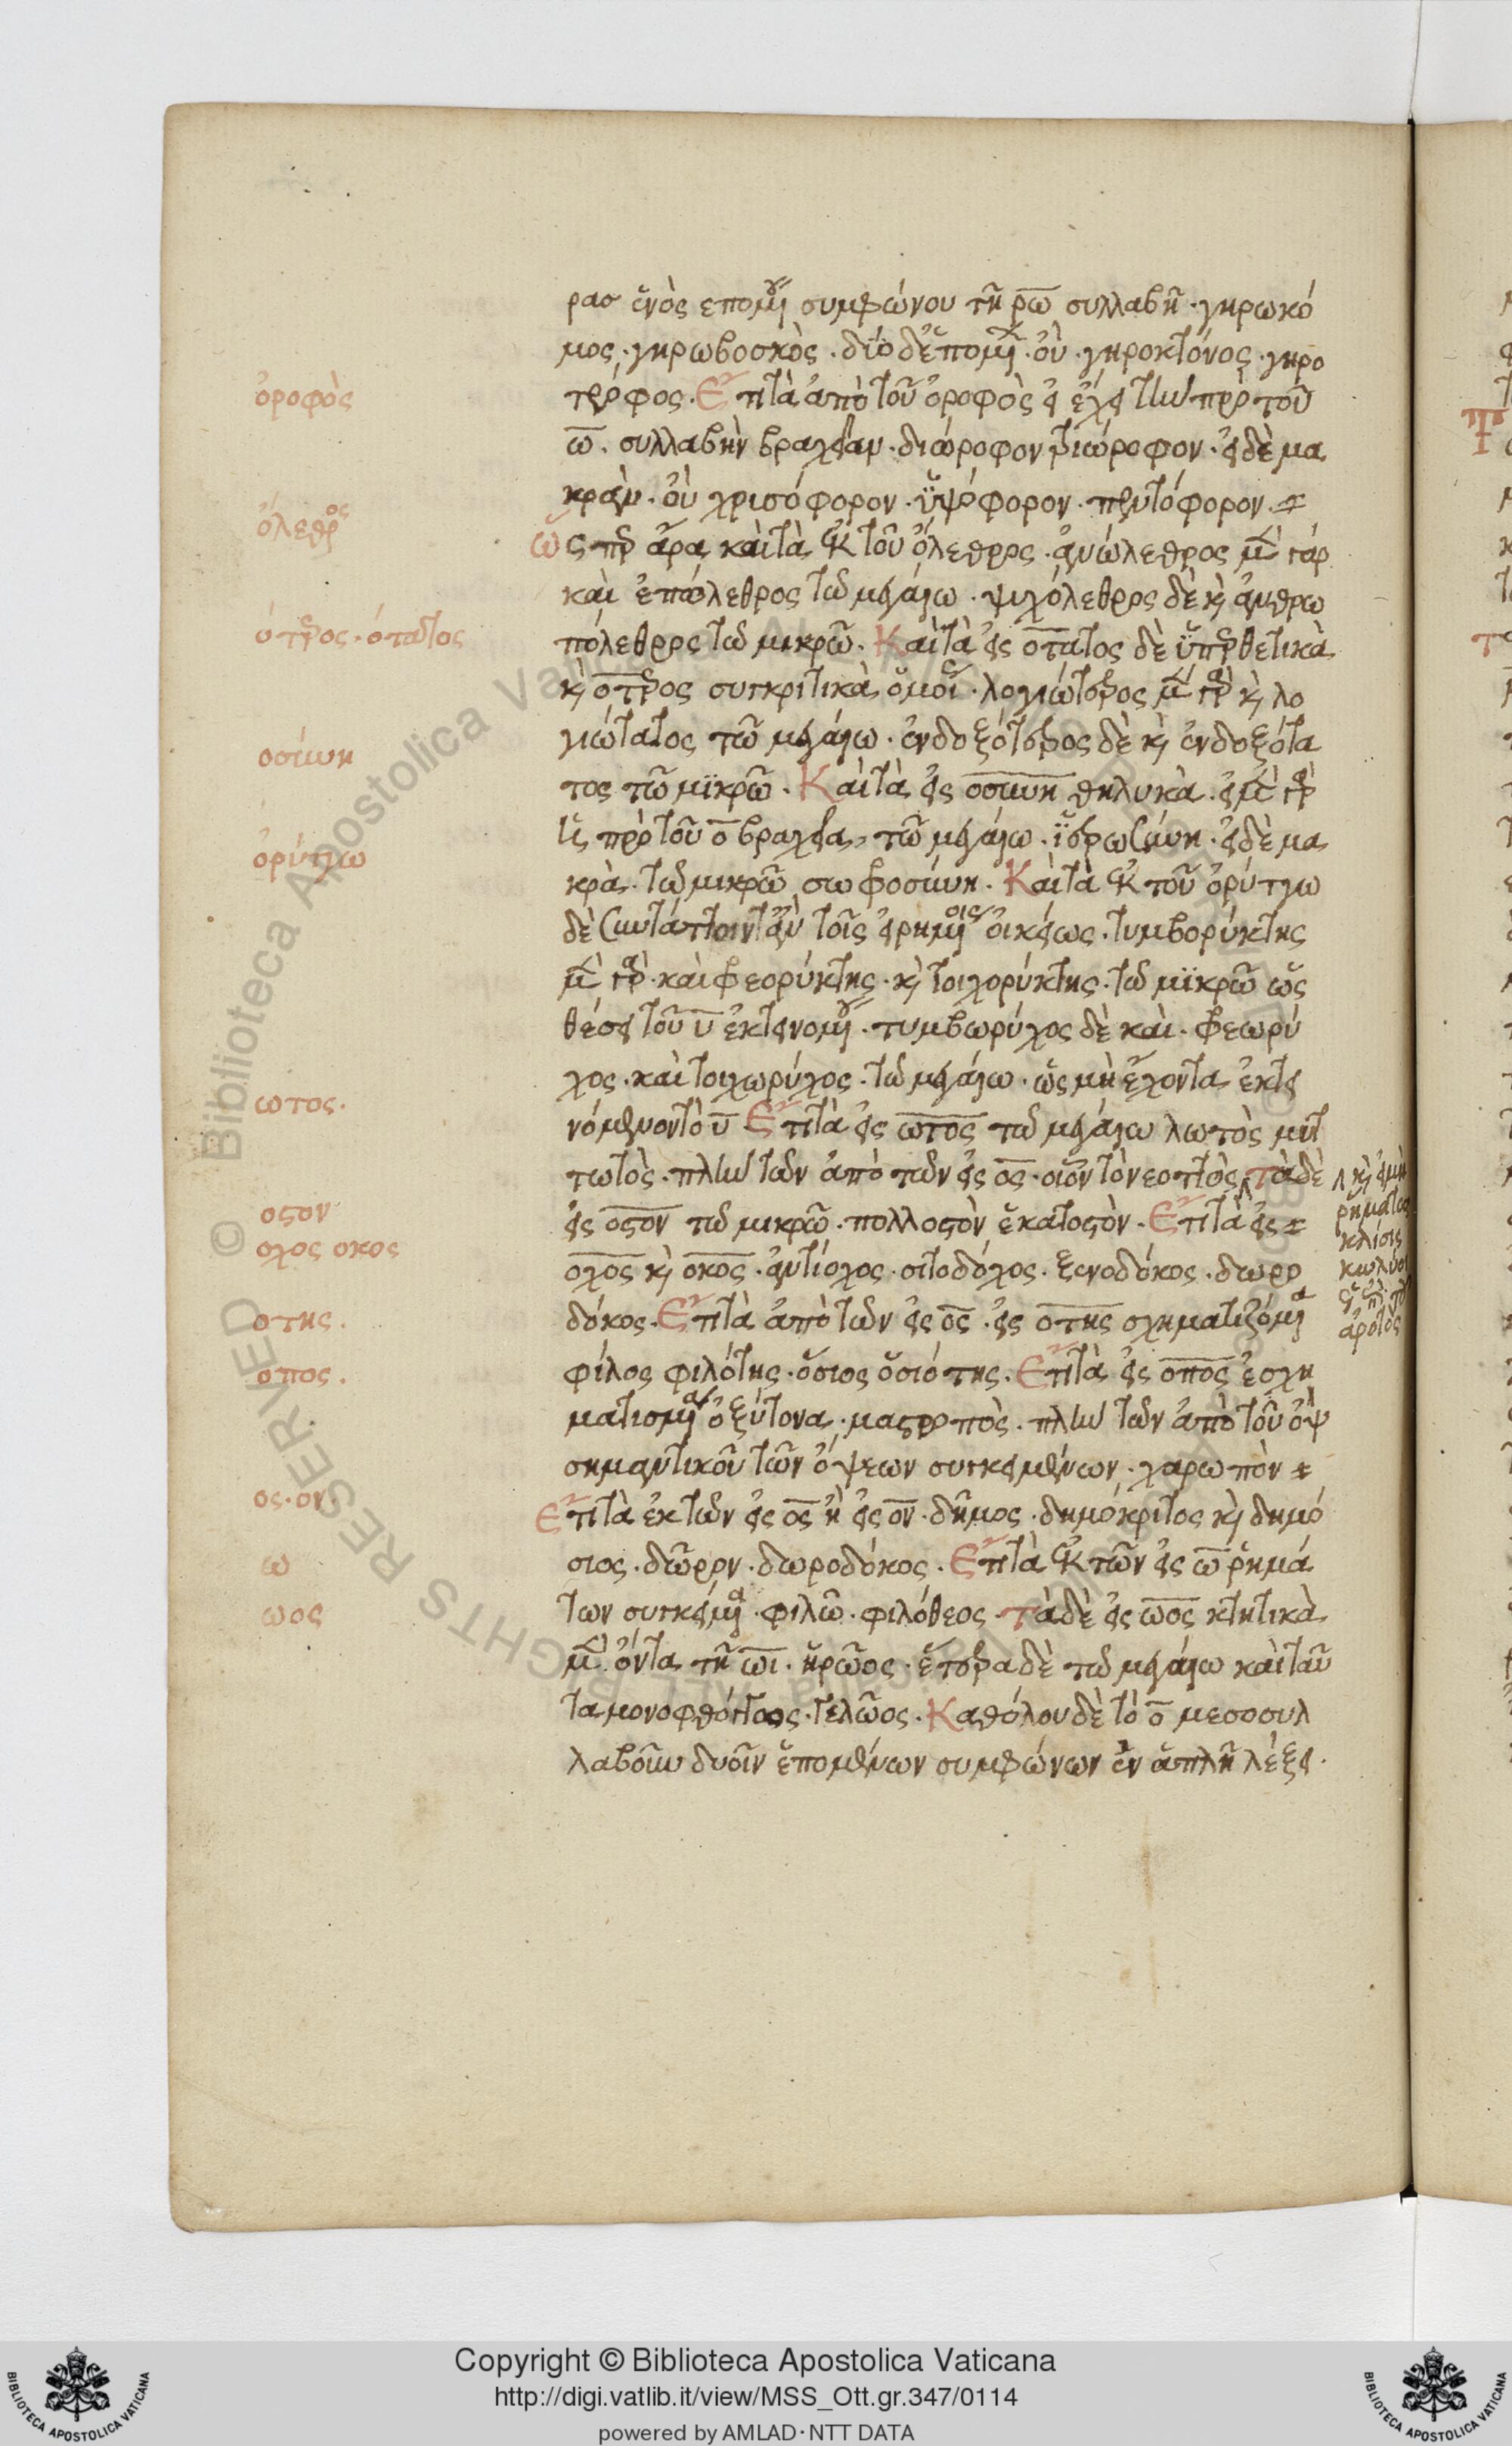 ρασ ἑνὸς επομένου συμφώνου τῆ ρω συλλαβῆ · γηρωκό
μος · γηρωβοσκὸς · δύο δ' ἑπομένων · οὐ · γηροκτόνος · γηρο
τρόφος. Ετι τὰ ἀπὸ τοῦ ὀροφὸς εἰ ἔχει τὴν πρὸ τοῦ
ω. συλλαβὴν βραχεῖαν · διώροφον τριώροφον · εἰ δὲ μα
κρὰν · οὐ χρισόφορον · ὑψόφορον · πρυτόφορον.
ὥς περ ἄρα καὶ τὰ ἐκ τοῦ ὄλεθρος · ἀνώλεθρος μὲν γάρ
καὶ ἐπώλεθρος τῶ μεγάλω · ψιχόλεθρος δὲ κὶ ἀνθρω
πόλεθρος τῶ μικρῶ. Καὶ τὰ εἰς οτατος δὲ ὑπερθετικὰ
κὶ οτερος συγκριτικὰ ὁμοίως · λογιώτερος μὲν γὰρ κὶ λο
γιώτατος τῶ μεγάλω · ἐνδοξότερος δὲ κὶ ἐνδοξότα
τος τῶ μϊκρῶ. Καὶ τὰ εἰς οσύνη θηλυκὰ · εἰ μὲν γὰρ
ἡ πρὸ τοῦ ο βραχεῖα, τῶ μεγάλω · ἱερωσύνη · εἰ δὲ μα
κρὰ · τῶ μικρῶ σωφοσύνη. Καὶ τὰ ἐκ τοῦ ὀρύττω
δὲ συντάττοιντ' ἂν τοῖς εἰρημένοις οἰκείως · τυμβορύκτης
μὲν γὰρ · καὶ φεορύκτης · κὶ τοιχορύκτης · τῶ μϊκρῶ ὡς
θέσει τοῦ υ ἐκτεινομένου · τυμβωρύχος δὲ καὶ · φεωρύ
χος · καὶ τοιχωρύχος · τῶ μεγάλω · ὡς μὴ ἔχοντα ἐκτει
νόμενον τὸ υ Ετι τὰ εἰς ωτος τῶ μεγάλω λωτὸς μητ
τωτὸς · πλὴν τῶν ἀπὸ τῶν εἰς ος · οιον τὸ νεοττὸς. Τὰ δὲ
εἰς οστον τῶ μικρῶ · πολλοστὸν ἑκατοστὸν. Ετι τὰ εἰς
οχος κὶ οκος · ἀντίοχος · σιτοδόχος · ξενοδόκος · δωρο
δόκος. Ετι τὰ ἀπὸ τῶν εἰς ος · εἰς οτης σχηματιζόμενα
φίλος φιλότης · ὅσιος ὁσιότης. Ετι τὰ εἰς οπος ἐσχη
ματισμένα ὀξύτονα · μαστροπὸς · πλὴν τῶν ἀπὸ τοῦ ὀψ
σημαντικοῦ τῶν ὄψεων συγκειμένων · χαρωπὸν
Ετι τὰ ἐκ τῶν εἰς ος ἢ εἰς ον · δῆμος · δημόκριτος κὶ δημό
σιος · δῶρον · δωροδόκος. Ετι τὰ ἐκ τῶν εἰς ω ῥημά
των συγκείμενα · φιλῶ · φιλόθεος · τὰ δὲ εἰς ωος κτητικὰ
μὲν ὄντα τῆ ωι · ἡρῶος · ἕτερα δὲ τῶ μεγάλω καὶ ταῦ
τα μονοφθόγγως · γελῶος. Καθόλου δὲ τὸ ο μεσοσυλ
λαβοῦν δυοῖν ἑπομένων συμφώνων ἐν ἁπλῆ λέξει.
ὀροφὸς
ὄλεθρος
ότερος · ότατος
οσύνη
ὀρύττω
ωτος.
οστον
οχος οκος
οτης.
οπος.
ος · ον.
ω
ωος
κὶ εἰ μὴ
ῥήματος
κλίσις
κωλύει
ἀρότος
Copyright © Biblioteca Apostolica Vaticana
http://digi.vatlib.it/view/MSS_Ott.gr.347/0114
powered by AMLAD · NTT DATA
BIBLIOTECA APOSTOLICA VATICANA
BIBLIOTECA APOSTOLICA VATICANA